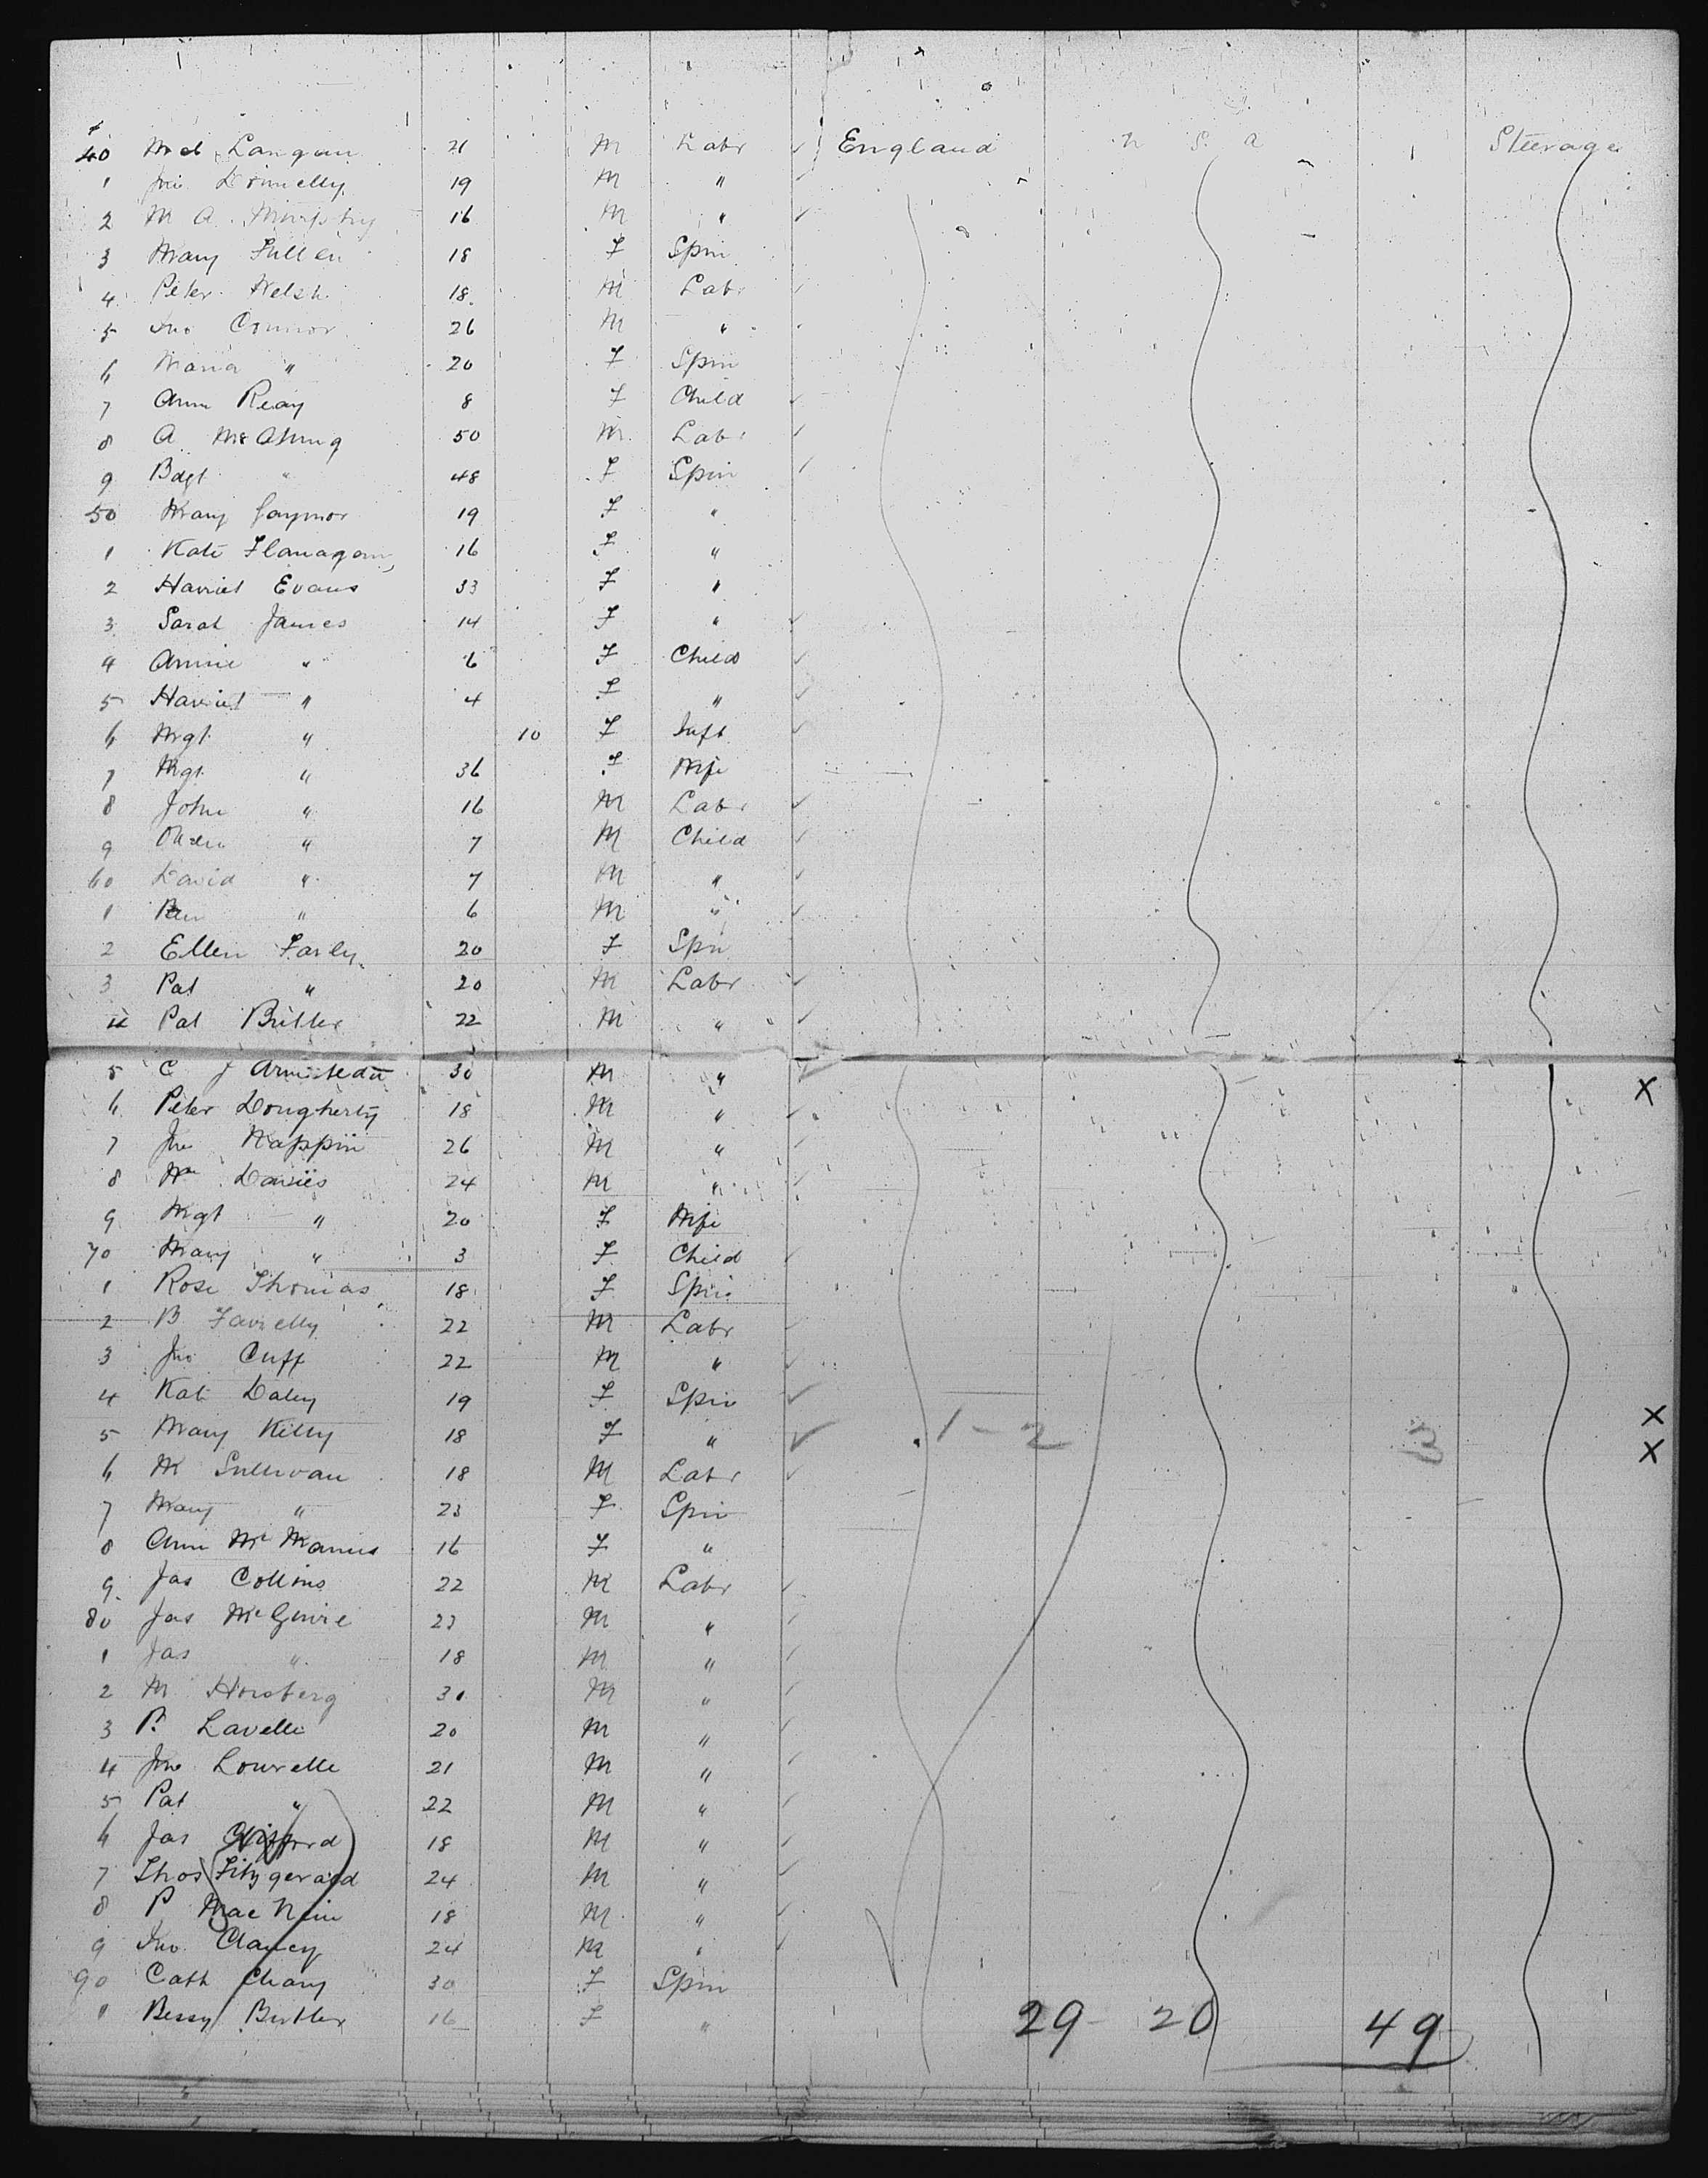 40 Langan 21 M Labr England U S A Steerage
1 Jno Donnelly 19 M "
2 M A Murphy 16 M "
3 Mary Fullen 18 F Spin
4 Peter Welsh 18 M Labr
5 Jno Connor 26 M "
6 Maria " 20 F Spin
7 Ann Reay 8 F Child
8 A 50 M Labr
9 Bdgt " 48 F Spin
50 Mary Gaynor 19 F "
1 Kate Flanagan 16 F "
2 Harriet Evans 33 F "
3 Sarah James 14 F "
4 Annie " 6 F Child
5 Harriet " 4 F "
6 Mgt " 10 F Inft
7 Mgt " 36 F Wife
8 John " 16 M Labr
9 Owen " 7 M Child
60 David " 7 M "
1 Ben " 6 M "
2 Ellen Farly 20 F Spn
3 Pat " 20 M Labr
4 Pat Butler 22 M "
5 C J 30 M " X
6 Peter Dougherty 18 M "
7 Jno Nappin 26 M "
8 Wm Davies 24 M "
9 Mgt " 20 F Wife
70 Mary " 3 F Child
1 Rose Thomas 18 F Spin
2 B Farrelly 22 M Labr
3 Jno Cuff 22 M "
4 Kate Daley 19 F Spin X
5 Mary Kelly 18 F " 1-2 3 X
6 M Sullivan 18 M Labr
7 Mary " 23 F Spin
8 Ann McManus 16 F "
9 Jas Collins 22 M Labr
80 Jas McGuire 23 M "
1 Jas " 18 M "
2 M Horsberg 30 M "
3 P. Lavelle 20 M "
4 Jno Lourelle 21 M "
5 Pat " 22 M "
6 Jas 18 M "
7 Thos Fitzgerald 24 M "
8 P Mac 18 M "
9 Jno Clancy 24 M "
90 Cath 30 F Spin
" Bessy Butler 16 F " 29 - 20 49